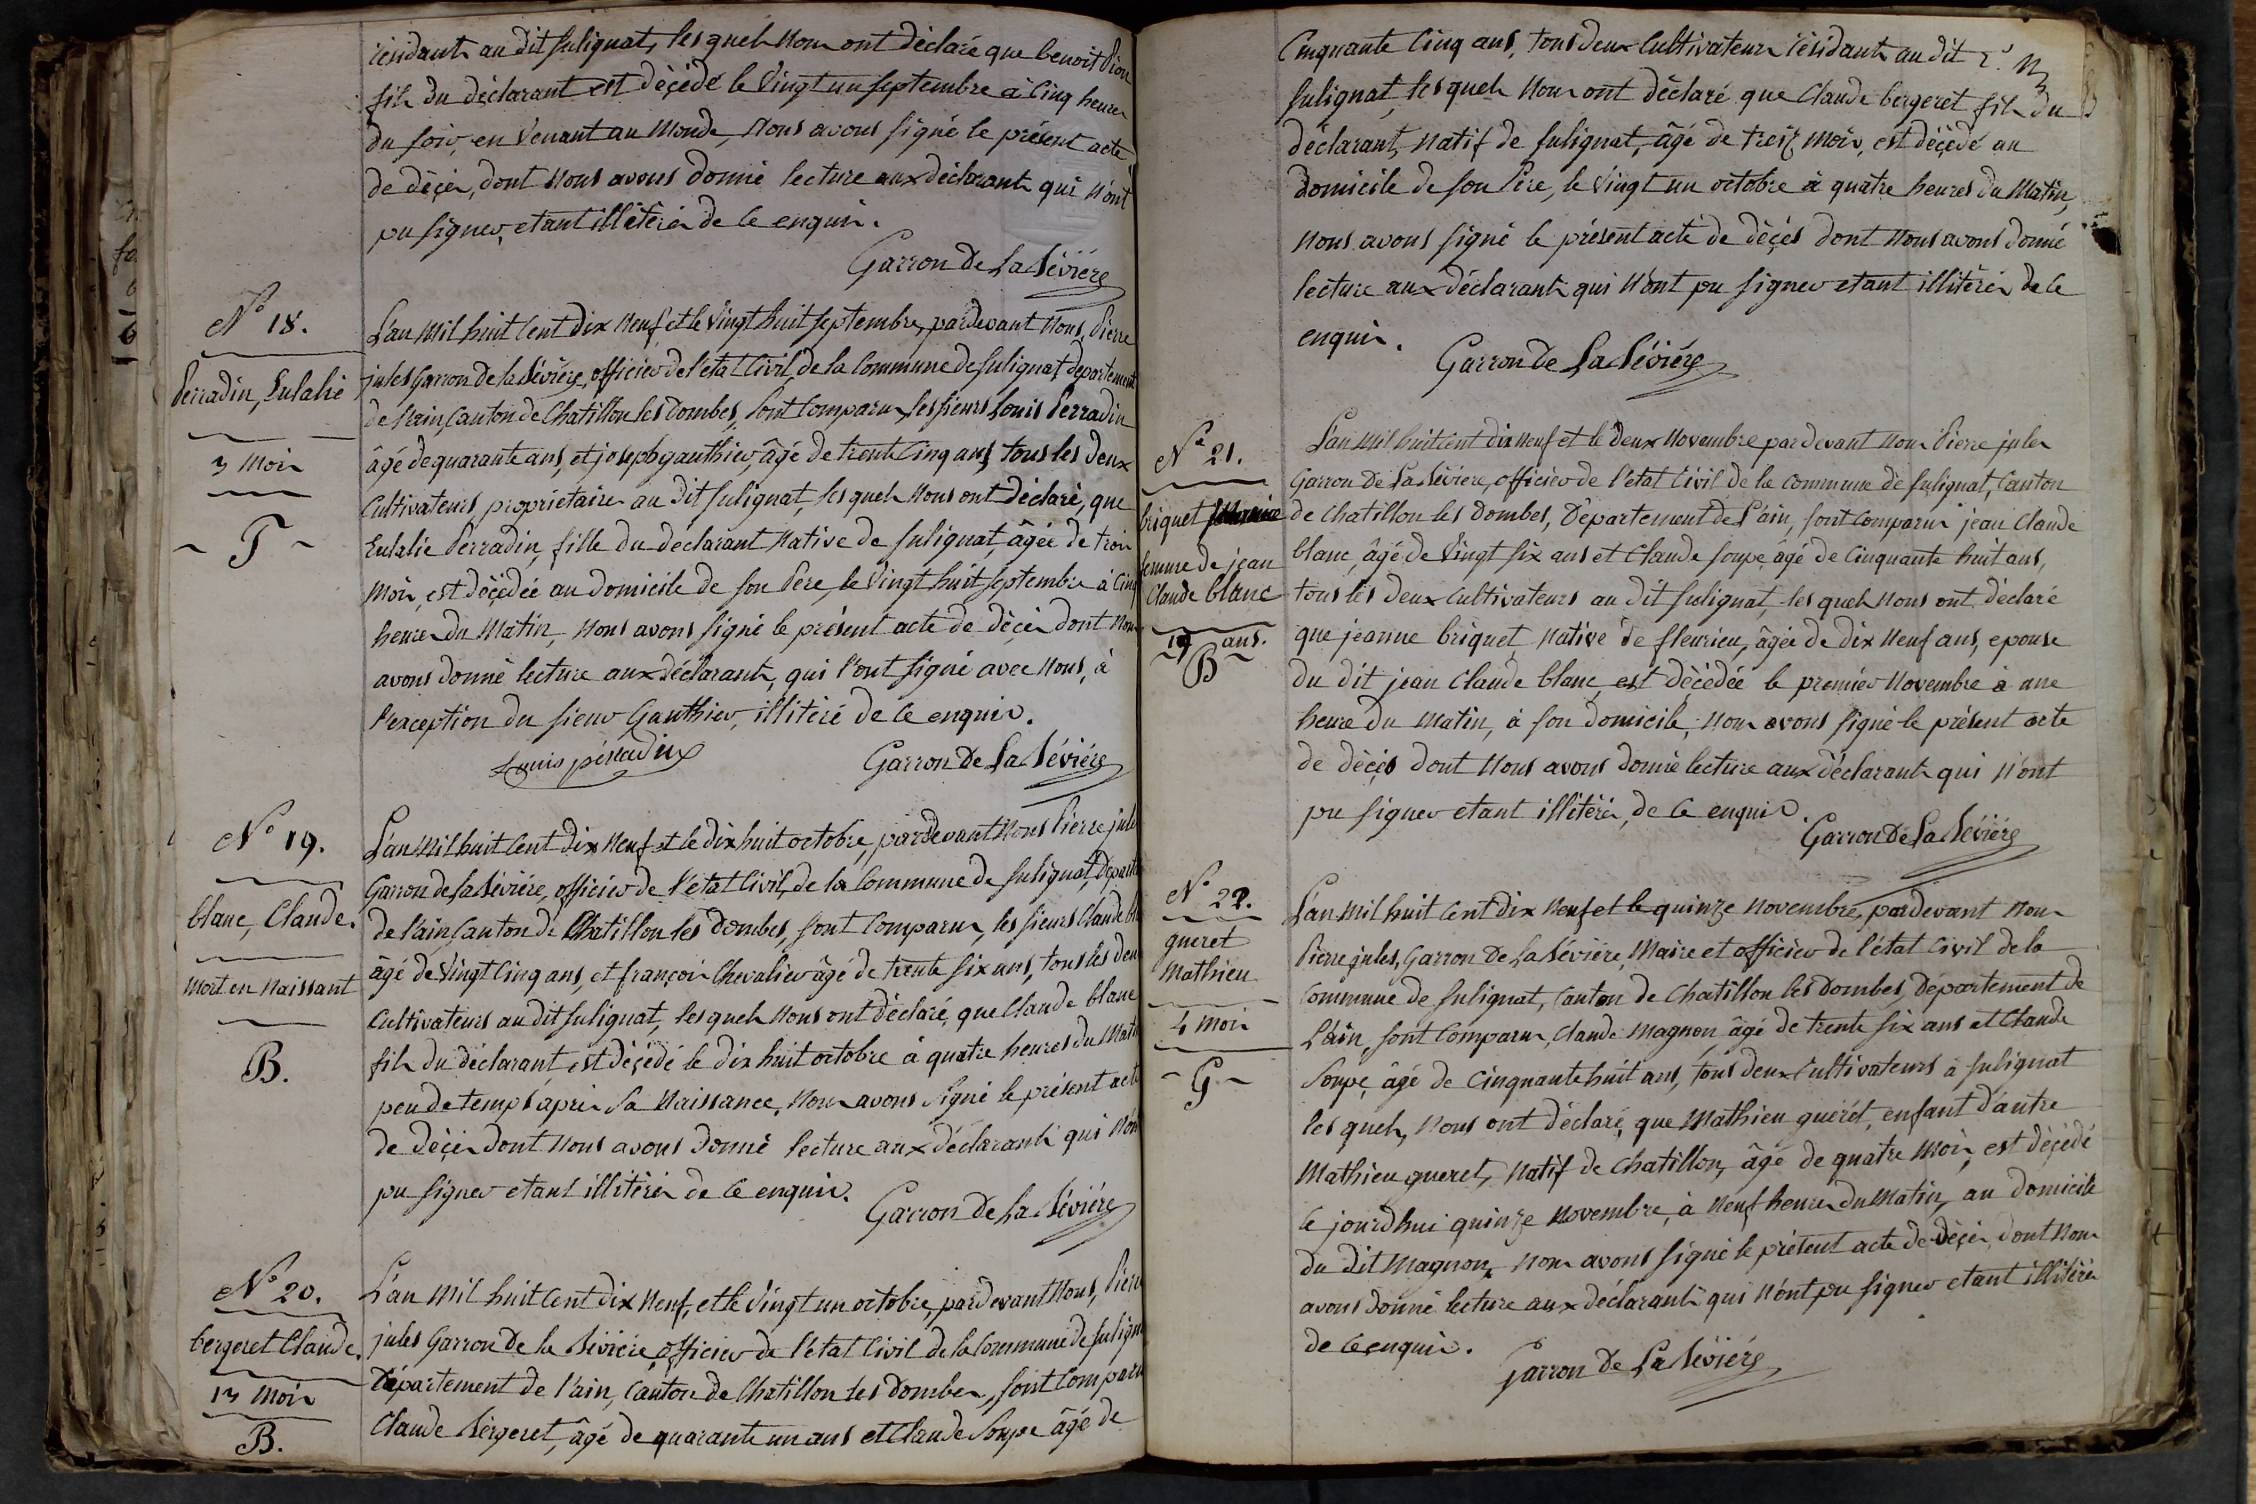 résidants au dit Sulignat, les quels Nous ont déclaré que benoit Pion
fils du déclarant est décédé le Vingt un septembre à Cinq heures
du soir, en Venant au Monde, Nous avons signé le présent acte
de décès, dont Nous avons donné lecture aux déclarants qui N'ont
pu signer, etant illitérés de ce enquis.
Garron De La Sévière
N° 18.
Perradin, Eulalie
3 Mois
P
L'an Mil huit Cent Dix Neuf et le Vingt huit Septembre, pardevant Nous, Pierre
jules Garron de la Sévière, officier de l'état Civil, de la Commune de Sulignat, département
de l'ain, Canton de Chatillon les Dombes, sont Comparus, les sieurs Louis Perradin
âgé de quarante ans, et joseph gauthier, âgé de trente Cinq ans, tous les deux
Cultivateurs propriétaires au dit Sulignat, les quels Nous ont déclaré, que
Eulalie Perradin, fille du declarant Native de Sulignat, âgée de trois
Mois, est décédée au domicile de son Pere, le Vingt huit septembre à Cinq
heures du Matin, Nous avons signé le présent acte de décès dont Nous
avons donné lecture aux déclarants, qui l'ont signé avec Nous, à
l'exception du sieur Gauthier, illitéré de ce enquis.
Louis péradin Garron De La Sévière
N° 19.
blanc, Claude.
Mort en Naissant
B.
L'an Mil huit Cent Dix Neuf et le dix huit octobre, pardevant Nous Pierre jules
Garron de la Sévière, officier de l'état Civil, de la Commune de Sulignat, départ
de l'ain, Canton de Chatillon les Dombes, sont Comparus, les sieurs Claude bl
âgé de Vingt Cinq ans, et françois Chevalier âgé de trente six ans, tous les deux
Cultivateurs au dit Sulignat, les quels Nous ont déclaré, que Claude blanc
fils du déclarant, est décédé le dix huit octobre à quatre heures du Matin
peu de temps après sa Naissance, Nous avons Signé le présent acte
de décès dont Nous avons donné lecture aux déclarants qui N'ont
pu signer etant illitérés de ce enquis.
Garron De La Sévière
N° 20.
bergeret Claude.
13 Mois
B.
L'an Mil huit Cent Dix Neuf, et le Vingt un octobre, pardevant Nous, Pierre
jules Garron De la Sévière, officier de l'état Civil de la Commune de Sulign
Département de l'ain, Canton de Chatillon les Dombes, sont Comparu
Claude Bergeret, âgé de quarante un ans et Claude Soupe âgé de
Cinquante Cinq ans, tous deux Cultivateurs résidants au dit
Sulignat, les quels Nous ont déclaré que Claude bergeret fils du
déclarant, Natif de Sulignat, âgé de treiz Mois, est décédé au
Domicile de son Père, le Vingt un octobre à quatre heures du Matin,
Nous avons signé le présent acte de décès dont Nous avons donné
lecture aux déclarants qui N'ont pu signer etant illitérés de ce
enquis.
Garron De La Sévière
N° 21.
briquet
femme de jean
Claude blanc
19 ans.
B
L'an Mil huit cent dix Neuf et le deux Novembre pardevant Nous Pierre jules
Garron De La Sévière, officier de l'état Civil de la Commune de Sulignat, Canton
de Chatillon les Dombes, Département de L'ain, sont Comparus jean Claude
blanc, âgé de Vingt six ans et Claude soupe âgé de Cinquante huit ans,
tous les deux Cultivateurs au dit Sulignat, les quels Nous ont déclaré
que jeanne briquet, Native de fleurieu, âgée de dix Neuf ans, epouse
du dit jean Claude blanc, est décédée le premier Novembre à une
heure du Matin, à son domicile, Nous avons signé le présent acte
de décès dont Nous avons donné lecture aux déclarants qui N'ont
pu signer etant illitérés, de ce enquis.
Garron De La Sévière
N° 22.
gueret
Mathieu
4 Mois
G.
L'an Mil huit Cent dix Neuf et le quinze Novembre, pardevant Nous
Pierre jules, Garron De La Sévière, Maire et officier de l'état Civil de la
Commune de Sulignat, Canton de Chatillon les Dombes, Département de
L'ain, sont Comparus, Claude Magnon, âgé de trente six ans et Claude
Soupe, âgé de Cinquante huit ans, tous deux Cultivateurs à Sulignat
les quels, Nous ont déclaré, que Mathieu guérét, enfant d'autre
Mathieu gueret, Natif de Chatillon, âgé de quatre Mois, est décédé
le jourd'hui quinze Novembre, à Neuf heures du Matin, au domicile
du dit Magnon, Nous avons signé le présent acte de décès, dont Nous
avons donné lecture aux déclarants qui N'ont pu signer etant illitérés
de ce enquis.
Garron De La Sévière